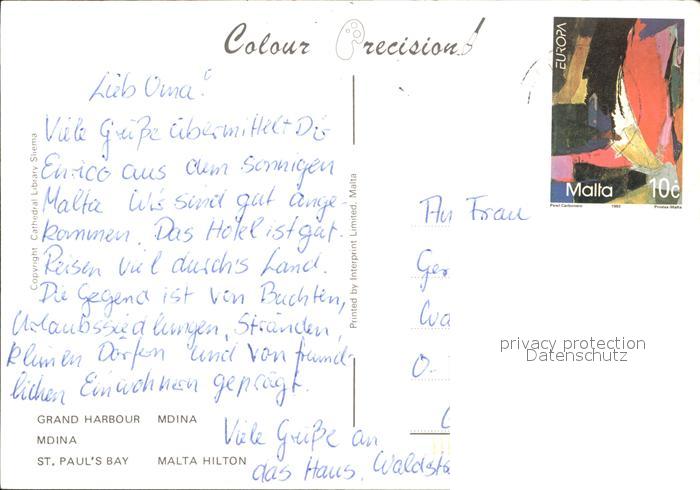 Colour Precision
Lieb Oma!
Viele Grüße übermittelt Dir
Enrico aus dem sonnigen
Malta Wir sind gut ange-
kommen. Das Hotel ist gut.
Reisen viel durch's Land.
Die Gegend ist von Buchten,
Urlaubssiedlungen, Stränden,
kleinen Dörfern und von freund-
lichen Einwohnern geprägt.
Viele Grüße an
das Haus, Waldstä
GRAND HARBOUR MDINA
MDINA
ST. PAUL'S BAY MALTA HILTON
Copyright Cathedral Library Sliema
Printed by Interprint Limited, Malta
EUROPA
Malta 10c
1993 Printex Malta
An Frau
Ger
Wa
O-
privacy protection
Datenschutz